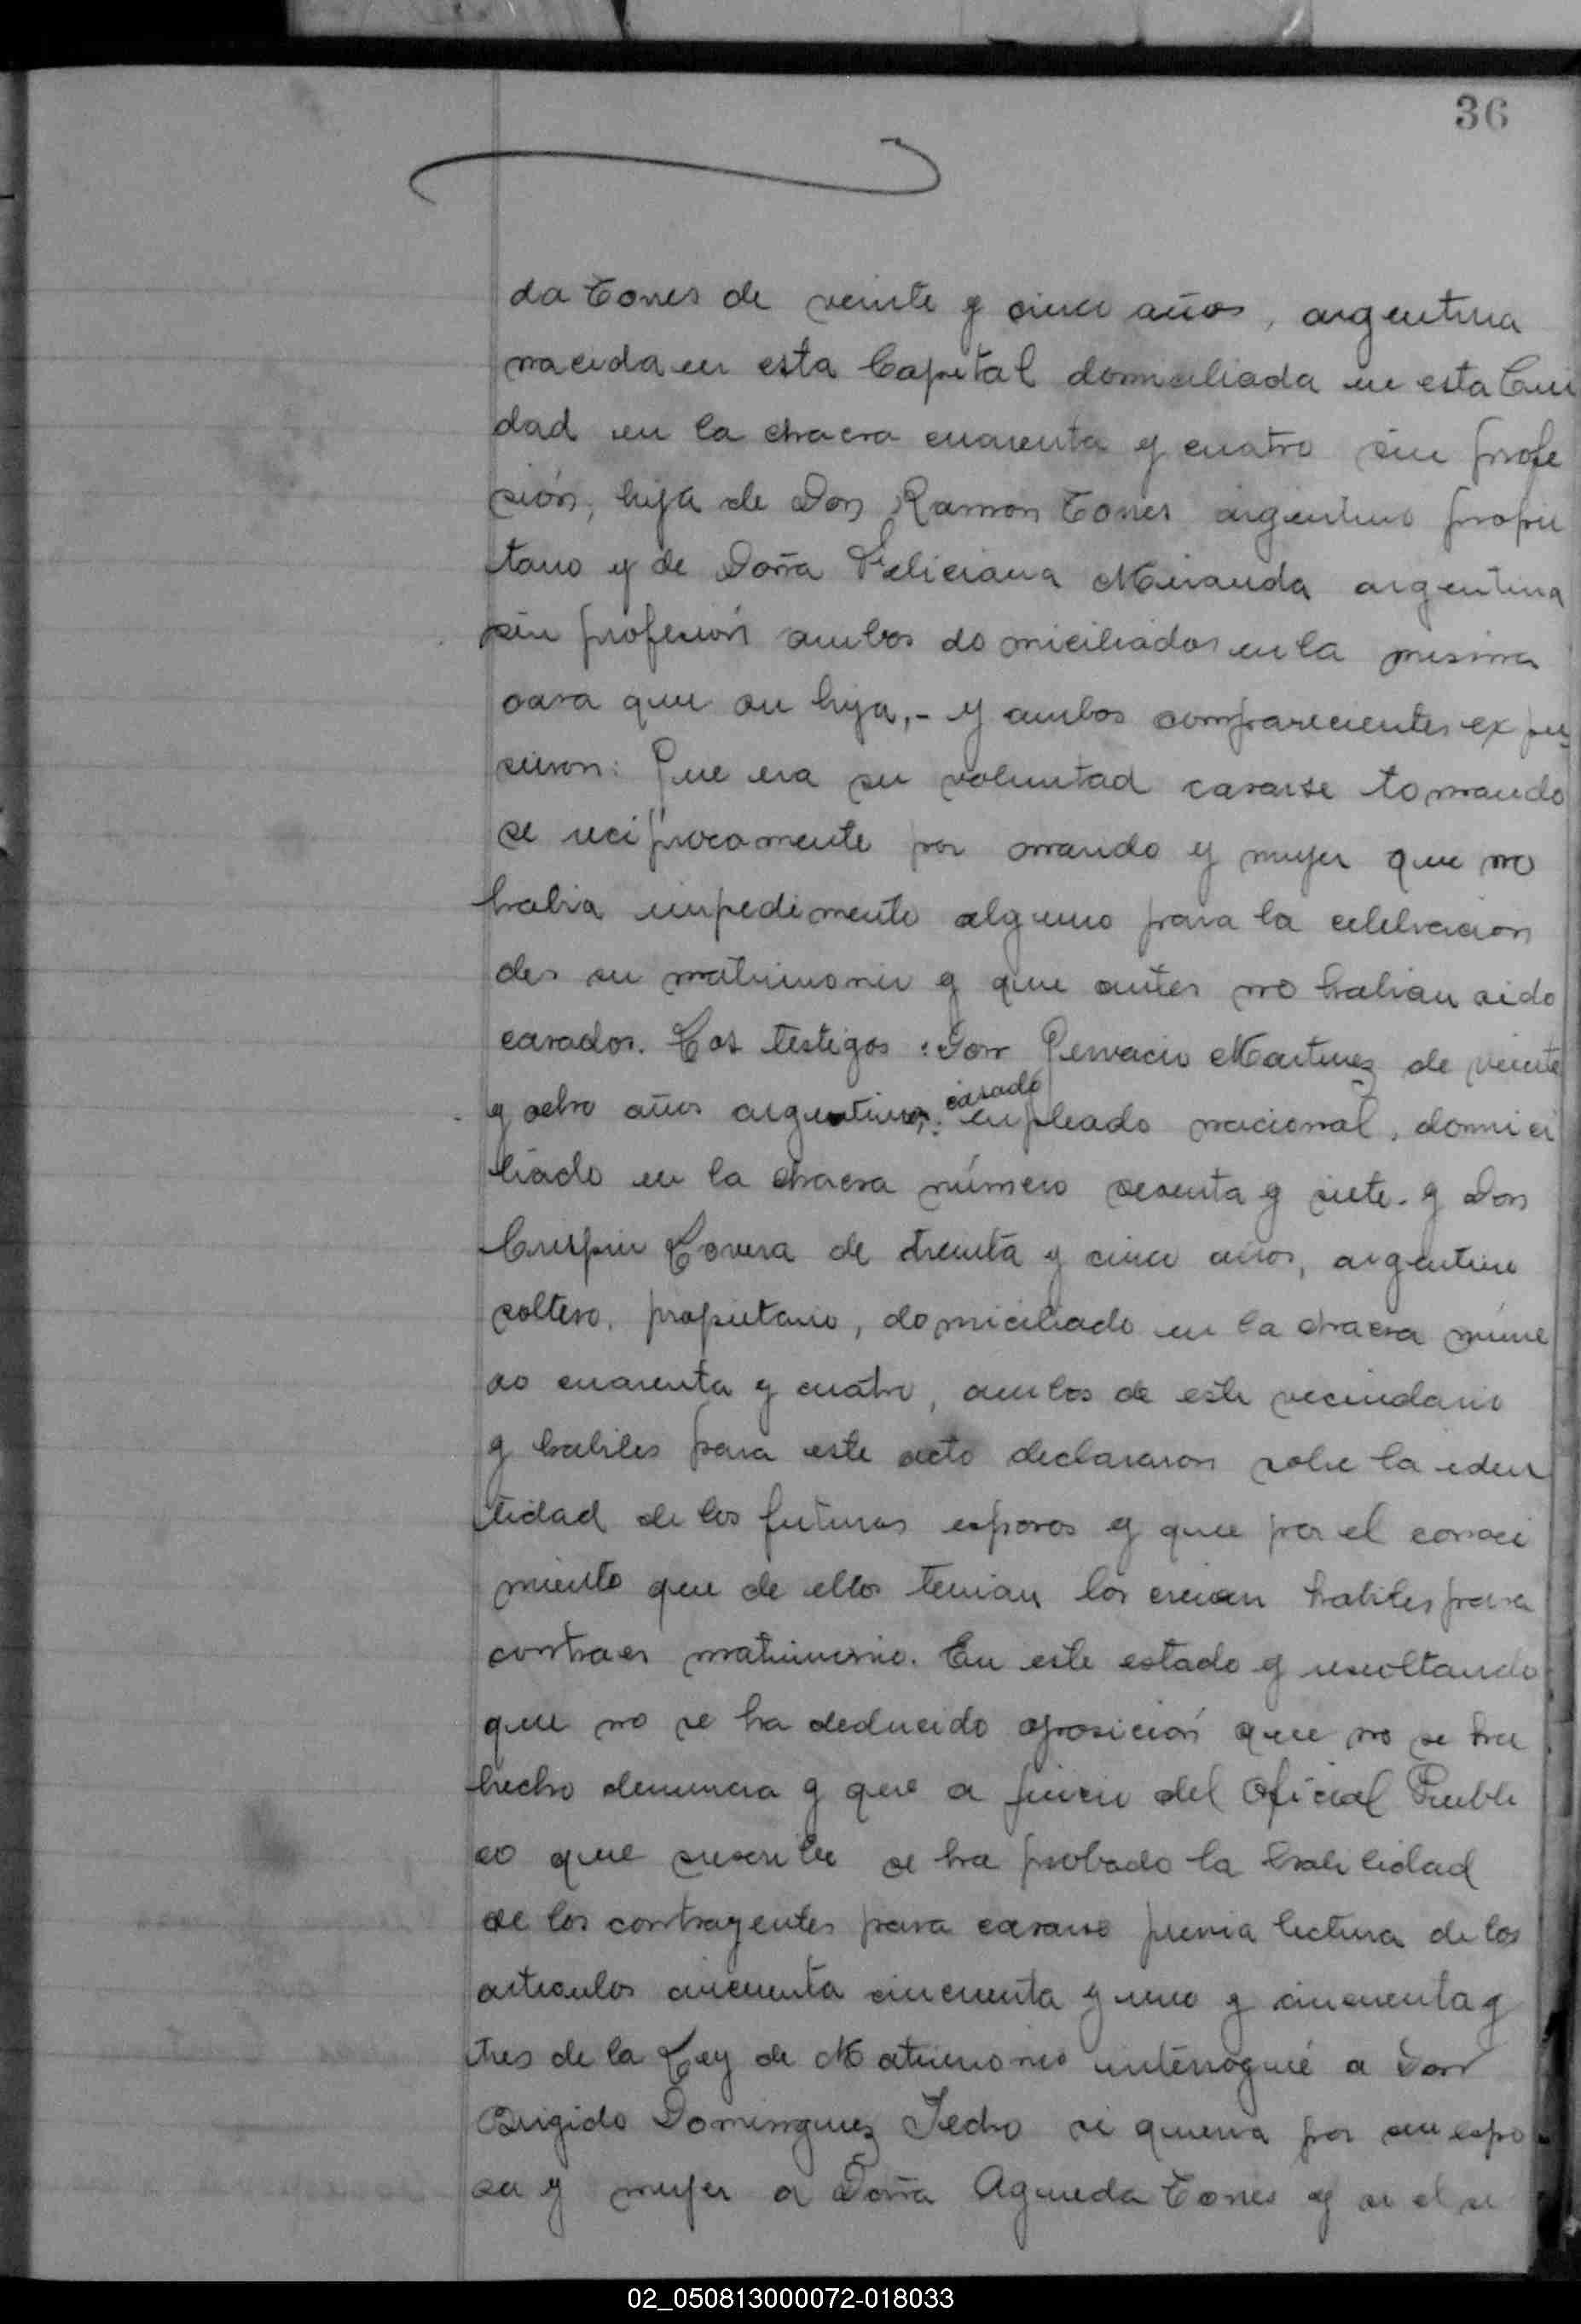 36
da Torres de veinte y cinco años, argentina
nacida en esta Capital domiciliada en esta Ciu
dad en la chacra cuarenta y cuatro sin profe
sión, hija de Don Ramon Torres argentino propie
tario y de Doña Feliciana Miranda argentina
sin profesión ambos domiciliados en la misma
casa que su hija,- y ambos comparecientes expu
sieron: Que era su voluntad casarse tomando
se reciprocamente por marido y mujer que no
habia impedimento alguno para la celebracion
de su matrimonio y que antes no habian sido
casados. Los testigos: Don Gervacio Martinez de veinte
y ocho años argentino, casado empleado nacional, domici
liado en la chacra número sesenta y siete. y Don
Crispin Lovera de treinta y cinco años, argentino
soltero, propietario, domiciliado en la chacra núme
ro cuarenta y cuatro, ambos de este vecindario
y habiles para este acto declararon sobre la iden
tidad de los futuros esposos y que por el conoci
miento que de ellos tenian los creian habiles para
contraer matrimonio. En este estado y resultando
que no se ha deducido oposición que no se ha
hecho denuncia y que a juicio del Oficial Publi
co que suscribe se ha probado la habilidad
de los contrayentes para casarse previa lectura de los
articulos cincuenta cincuenta y uno y cincuenta y
tres de la Ley de Matrimonio interrogué a Don
Brigido Dominguez Tedro si queria por su espo
sa y mujer a Doña Agueda Torres y si el se
02_050813000072-018033